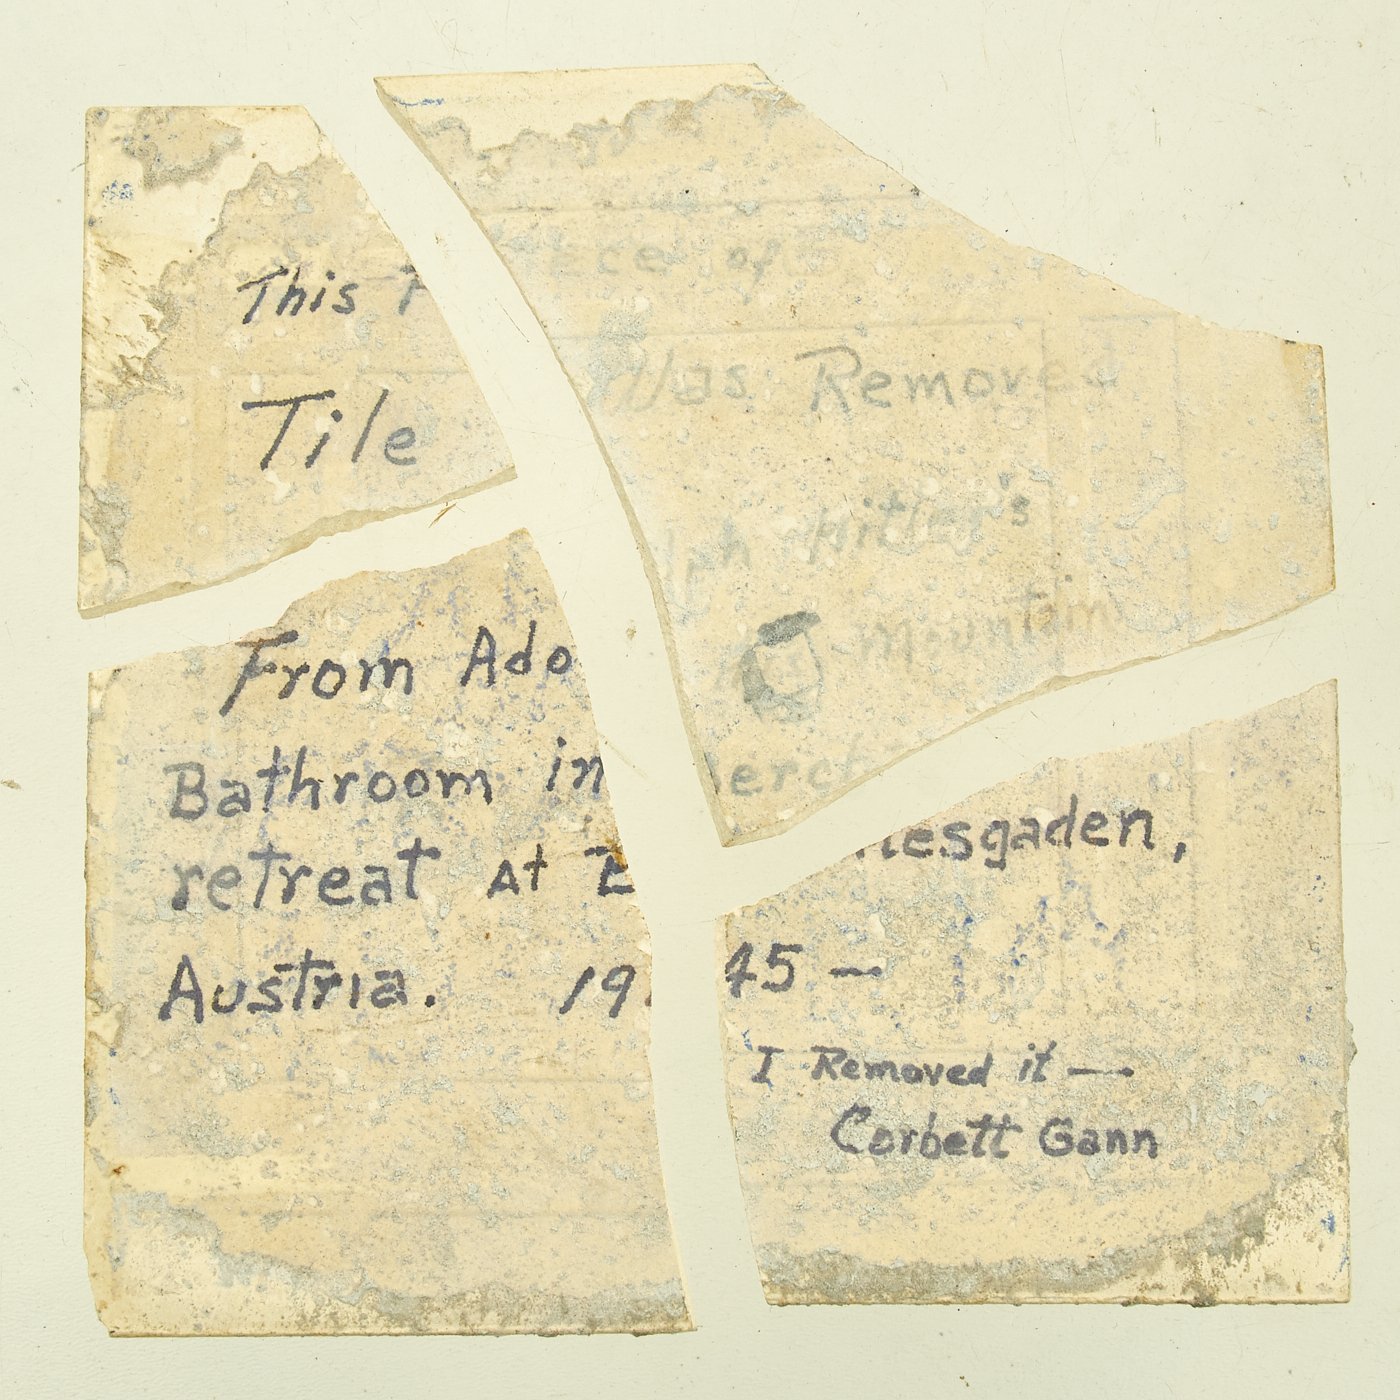 This Piece of
Tile Was Removed
From Adolph Hitler's
Bathroom in his mountain
retreat At Berchtesgaden,
Austria. 1945 —
I Removed it —
Corbett Gann